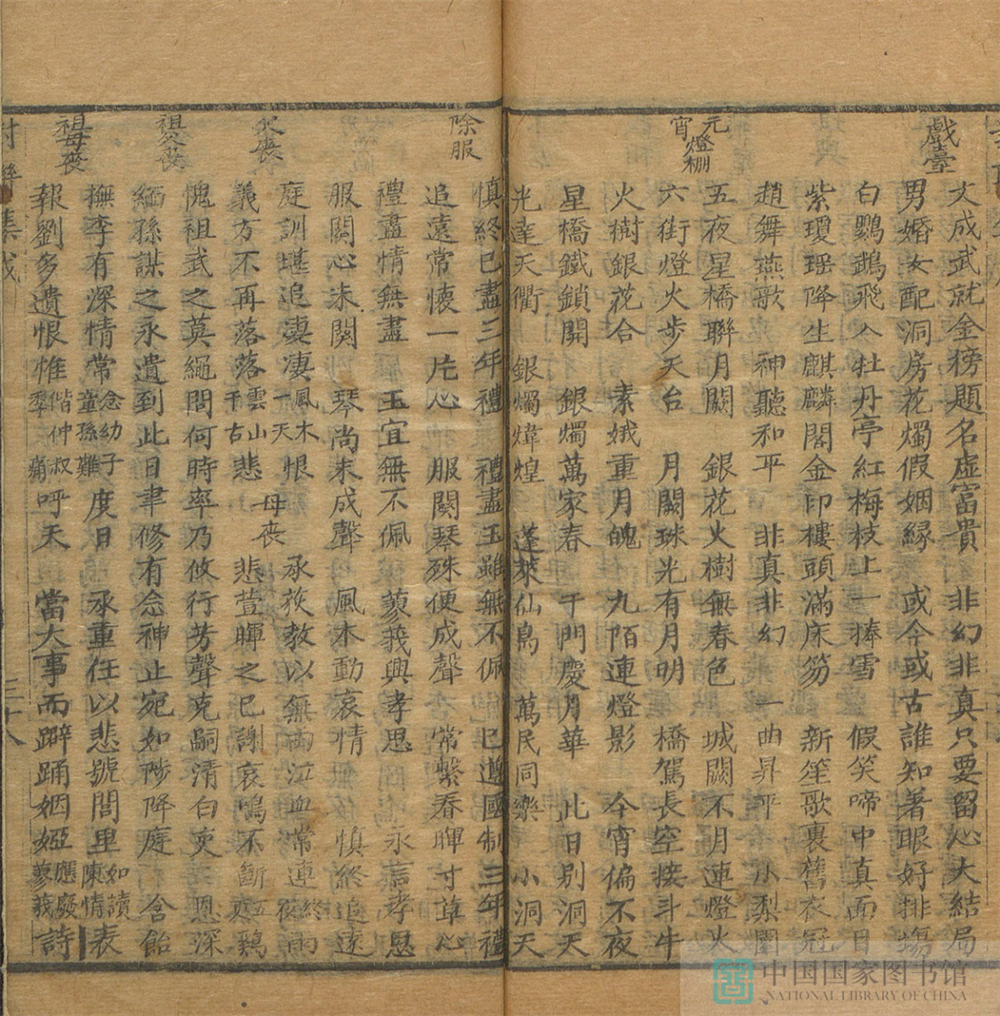 戲臺
文成武就金榜題名虛富貴　非幻非真只要留心大結局
男婚女配洞房花燭假姻緣　或今或古誰知著眼好排塲
白鸚鵡飛入牡丹亭紅梅枝上一捧雪　假笑啼中真面目
紫瓊瑶降生麒麟閣金印樓頭滿床笏　新笙歌裏舊衣冠
趙舞燕歌　神聽和平　非真非幻　一曲昇平　小梨園
元宵燈棚
五夜星橋聯月闕　銀花火樹無春色　城闕不月連燈火
六街燈火步天台　月闕珠光有月明　橋駕長空接斗牛
火樹銀花合　素娥重月魄　九陌連燈影　今宵偏不夜
星橋鐵鎖開　銀燭萬家春　千門慶月華　此日别洞天
光達天衢　銀燭煒煌　蓬萊仙島　萬民同樂　小洞天
除服
慎終已盡三年禮　禮盡玉雖無不佩　已遵國制三年禮
追遠常懷一片心　服闋琴殊便成聲　常繫春暉寸草心
禮盡情無盡　玉宜無不佩　蓼莪興孝思　永言孝思
服闋心未闋　琴尚未成聲　風木動哀情　慎終追遠
父喪
庭訓堪追凄凄風木一天恨　母喪　承荻教以無由泣血常連終夜雨
義方不再落落雲山千古悲　悲萱暉之已謝哀鳴不斷五更鷄
祖父喪
愧祖武之莫繩問何時率乃攸行芳聲克嗣清白吏　恩深
緬孫謀之永遺到此日聿修有念神止宛如陟降庭　含飴
祖母喪
撫李有深情常念幼子童孫難度日　承重任以悲號閭里如讀陳情表
報劉多遺恨惟偕仲叔季痛呼天　當大事而躃踊姻婭應廢蓼莪詩
三十八